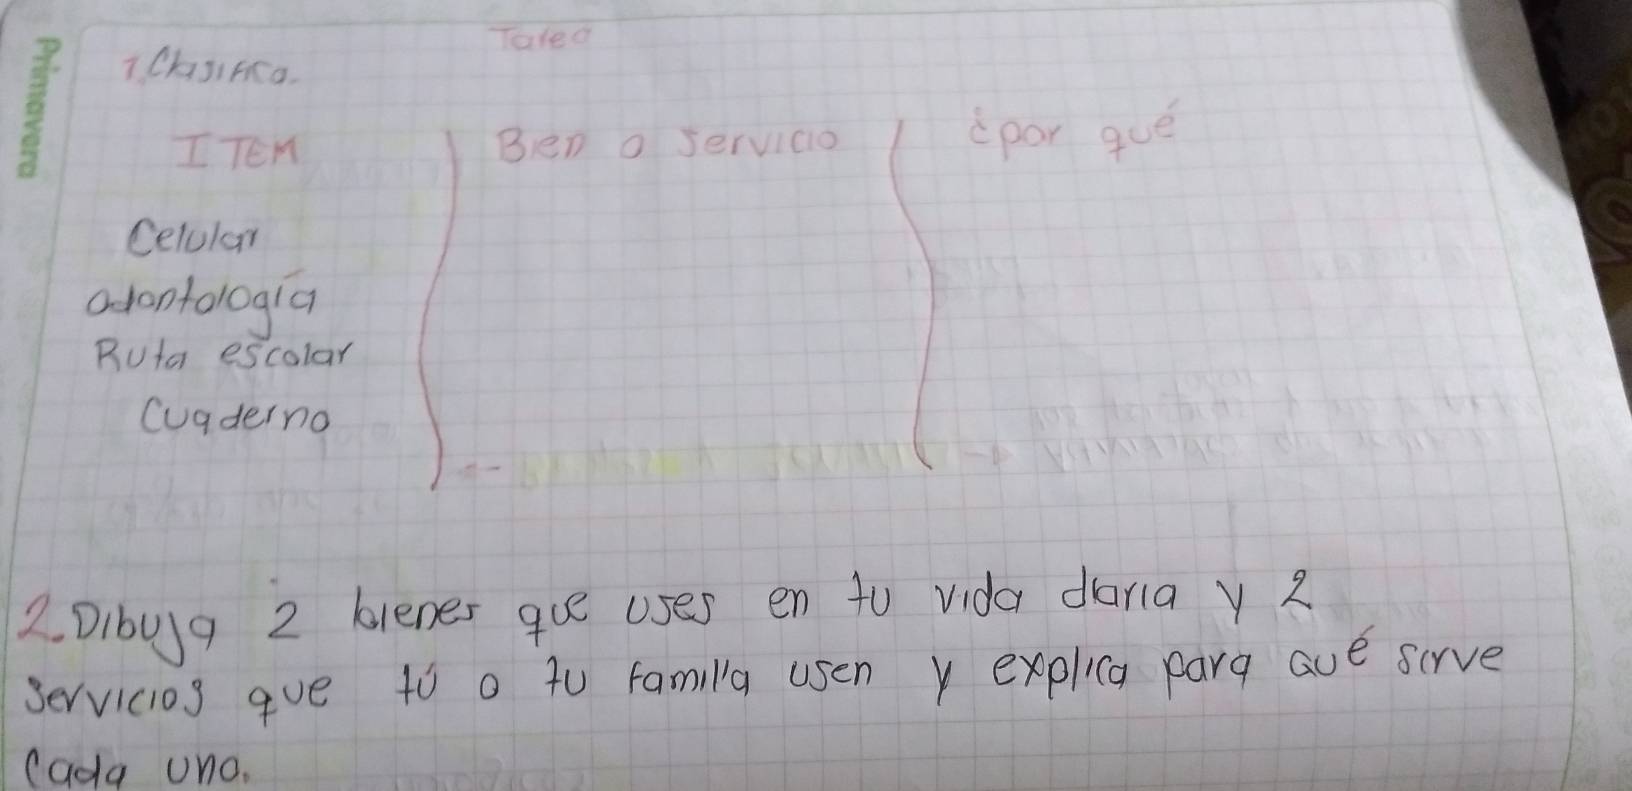 Primavera
Tarea
1. Clasifica.
ITEM Bien o servicio ¿por qué
Celular
odontología
Ruta escolar
Cuaderno
2. Dibuja 2 bienes que uses en tu vida diaria y 2
servicios que tú o tu familia usen y explica para qué sirve
cada uno.